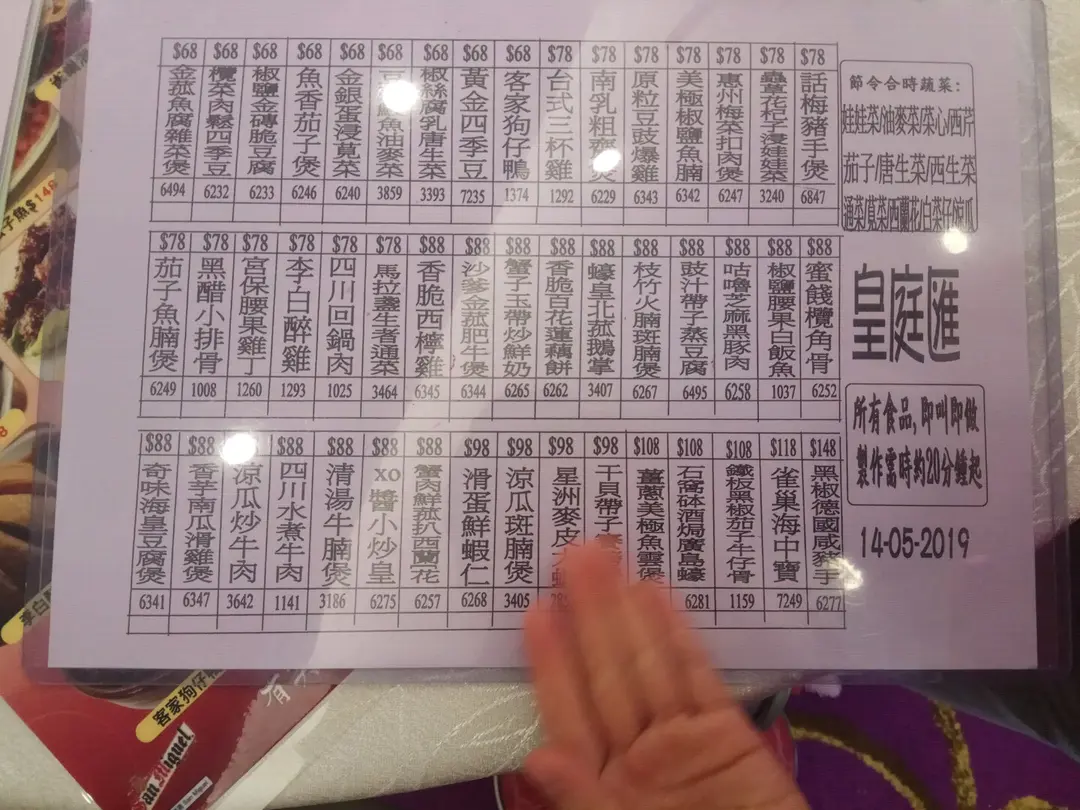 $68 $68 $68 $68 $68 $68 $68 $68 $68 $78 $78 $78 $78 $78 $78 $78
金菇魚腐雜菜煲
欖菜肉鬆四季豆
椒鹽金磚脆豆腐
魚香茄子煲
金銀蛋浸莧菜
魚油麥菜
椒絲腐乳唐生菜
黃金四季豆
客家狗仔鴨
台式三杯雞
南乳粗齋煲
原粒豆豉爆雞
美極椒鹽魚腩
惠州梅菜扣肉
蟲草花杞子浸娃娃菜
話梅豬手煲
6494 6232 6233 6246 6240 3859 3393 7235 1374 1292 6229 6343 6342 6247 3240 6847
$78 $78 $78 $78 $78 $78 $88 $88 $88 $88 $88 $88 $88 $88 $88 $88
茄子魚腩煲
黑醋小排骨
宮保腰果雞丁
李白醉雞
四川回鍋肉
馬拉盞生啫通菜
香脆西檸雞
沙爹金菰肥牛煲
蟹子玉帶炒鮮奶
香脆百花蓮藕餅
蠔皇北菰鵝掌
枝竹火腩斑腩煲
豉汁帶子蒸豆腐
咕嚕芝麻黑豚肉
椒鹽腰果白飯魚
蜜餞欖角骨
6249 1008 1260 1293 1025 3464 6345 6344 6265 6262 3407 6267 6495 6258 1037 6252
$88 $88 $88 $88 $88 $88 $88 $98 $98 $98 $98 $108 $108 $108 $118 $148
奇味海皇豆腐煲
香芋南瓜滑雞煲
涼瓜炒牛肉
四川水煮牛肉
清湯牛腩煲
xo醬小炒皇
蟹肉鮮菰扒西蘭花
滑蛋鮮蝦仁
涼瓜斑腩煲
星洲麥皮
干貝帶子
薑蔥美極魚雲煲
石窩砵酒焗廣島蠔
鐵板黑椒茄子牛仔骨
雀巢海中寶
黑椒德國咸豬手
6341 6347 3642 1141 3186 6275 6257 6268 3405 6281 1159 7249 6277
節令合時蔬菜:
娃娃菜/油麥菜/菜心/西芹
茄子/唐生菜/西生菜
通菜/莧菜/西蘭花/白菜仔/節瓜
皇庭匯
所有食品,即叫即做
製作需時約20分鐘起
14-05-2019
子魚$148
李白
客家狗仔鴨
San Miguel